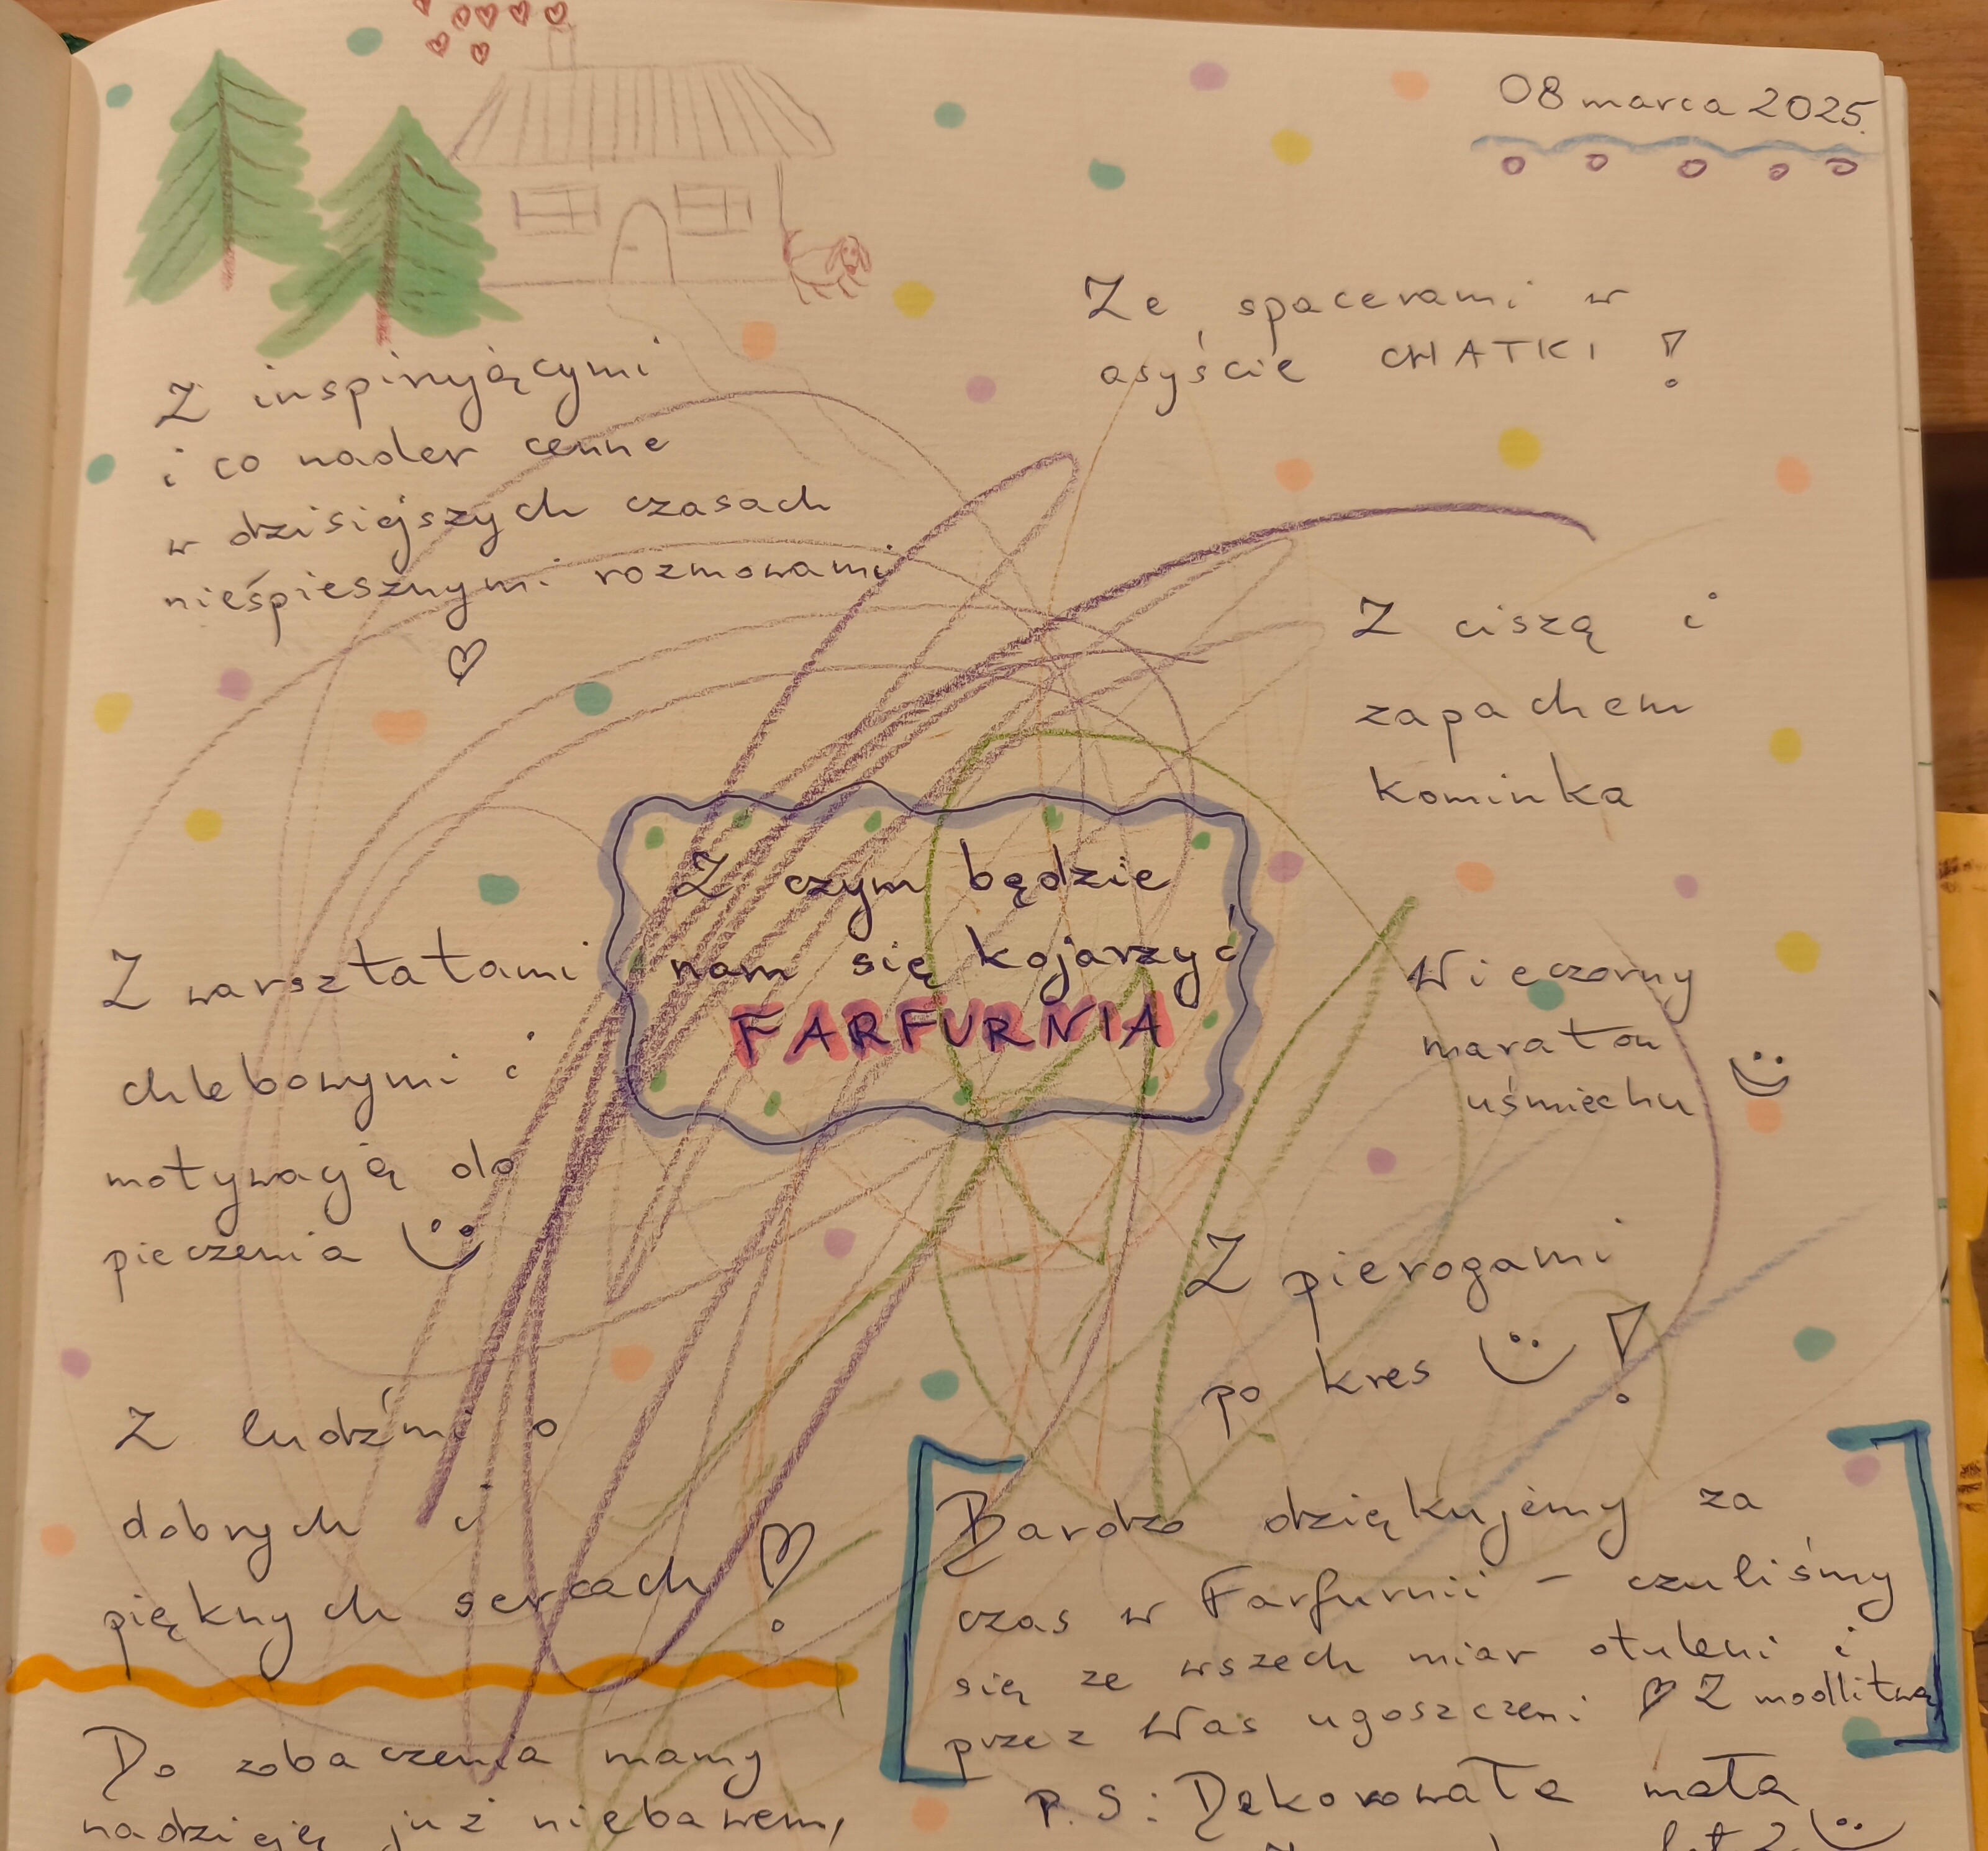 08 marca 2025.
Ze spacerami w
asyście CHATKI !
Z inspirującymi
i co nader cenne
w dzisiejszych czasach
nieśpiesznymi rozmowami
Z ciszą i
zapachem
kominka
Z czym będzie
nam się kojarzyć
FARFURNIA
Wieczorny
maraton
uśmiechu
Z warsztatami
chlebowymi i
motywacją do
pieczenia
Z pierogami
po kres !
Z ludźmi o
dobrych i
pięknych sercach !
Bardzo dziękujemy za
czas w Farfurnii - czuliśmy
się ze wszech miar otuleni i
przez Was ugoszczeni Z modlitwą
Do zobaczenia mamy
nadzieję już niebawem,
P.S: Dekorowała mała
lat 2